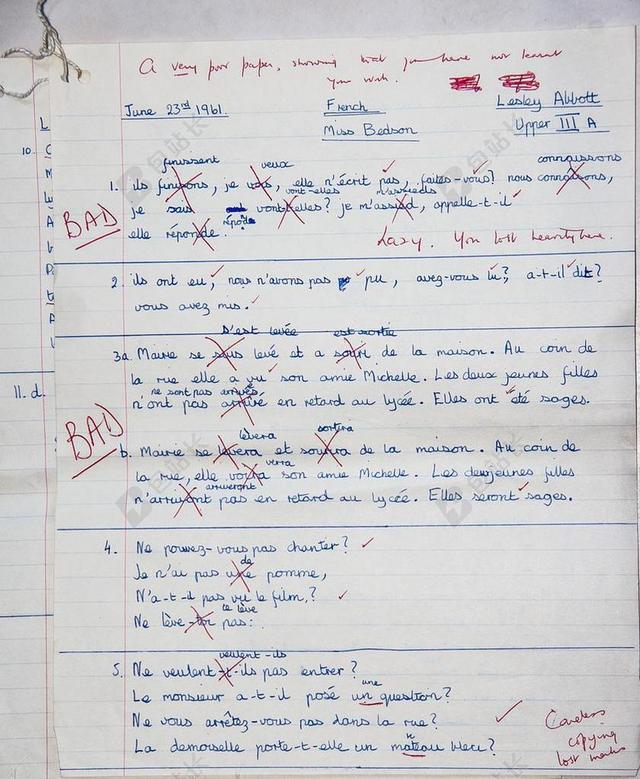 A very poor paper, showing that you have not learnt
your work.
June 23rd 1961. French Lesley Abbott
Miss Bedson Upper III A
finissent veux connaissons
1. ils finissons, je vois, elle n'écrit pas, faites-vous? nous connaisons,
vont-elles m'assieds
je sais vont-elles? je m'assied, appelle-t-il
répond
elle réponde.
BAD
Lazy. You lost heavily here.
2. ils ont eu, nous n'avons pas pu, avez-vous lu?, a-t-il dit?
vous avez mis.
s'est levée est sortie
3a. Marie se sous levé et a souri de la maison. Au coin de
la rue elle a vu son amie Michelle. Les deux jeunes filles
ne sont pas arrivées
n'ont pas arrivé en retard au lycée. Elles ont été sages.
BAD
lèvera sortira
b. Marie se levera et sourira de la maison. Au coin de
verra
la rue, elle voira son amie Michelle. Les deux jeunes filles
arriveront
n'arriveront pas en retard au lycée. Elles seront sages.
4. Ne pouvez-vous pas chanter?
de
Je n'ai pas une pomme,
N'a-t-il pas vu le film,?
te lève
Ne lève-toi pas.
veulent-ils
5. Ne veulent-t-ils pas entrer?
une
Le monsieur a-t-il posé un question?
Ne vous arrêtez-vous pas dans la rue?
La demoiselle porte-t-elle un mateau bleu?
Careless
copying
lost marks
10.
11. d.